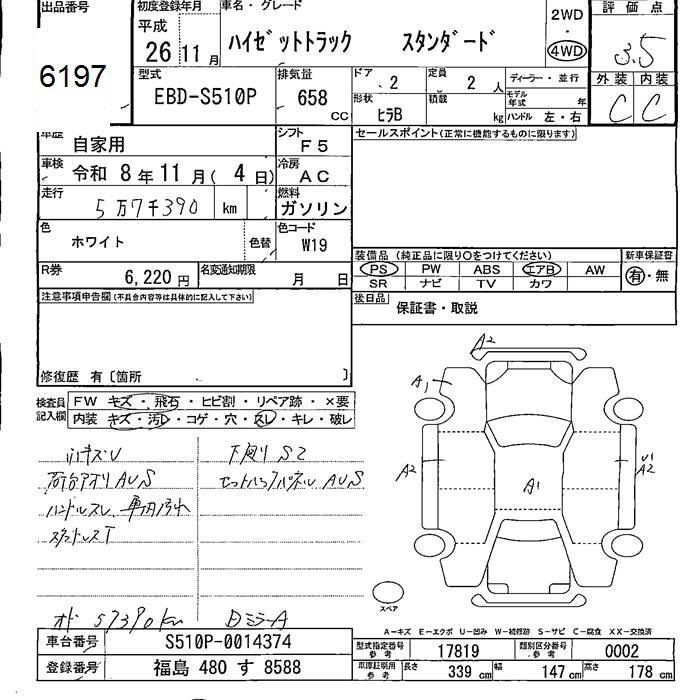 出品番号
6197
初度登録年月
平成
26年11月
車名・グレード
ハイゼットトラック スタンダード
2WD
・
4WD
評価点
3.5
型式
EBD-S510P
排気量
658 CC
ドア
2
定員
2人
ディーラー・並行
モデル年式 年
外装 内装
C C
形状
ヒラB
積載
kg
ハンドル 左・右
車歴
自家用
シフト
F5
セールスポイント(正常に機能するものに限ります)
車検
令和 8年11月(4日)
冷房
AC
走行
5万7千390 km
燃料
ガソリン
色
ホワイト
色替
色コード
W19
装備品(純正品に限り○をつけてください)
新車保証書
PS PW ABS エアB AW
有・無
SR ナビ TV カワ
R券
6,220円
名変通知期限
月 日
後日品
保証書・取説
注意事項申告欄(不具合内容等は具体的に記入して下さい)
修復歴 有〔箇所 〕
検査員記入欄
FW キズ・飛石・ヒビ割・リペア跡・×要
内装 キズ・汚レ・コゲ・穴・スレ・キレ・破レ
小キズU
下廻りS2
荷台アオリAUS
セットバックパネルAUS
ハンドルスレ、車内汚れ
スタッドレスT
オド 57390km
DミラーA
A2
A1
A2
A1
U1
A2
スペア
A-キズ E-エクボ U-凹み W-補修跡 S-サビ C-腐食 XX-交換済
車台番号
S510P-0014374
型式指定番号 参考
17819
類別区分番号 参考
0002
登録番号
福島 480 す 8588
車庫証明用 参考
長さ 339 cm 幅 147 cm 高さ 178 cm